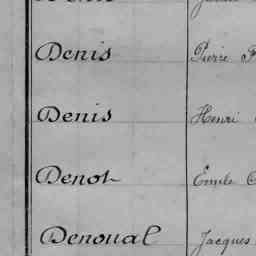 Denis Pierre
Denis Henri
Denot Emile
Denoual Jacques